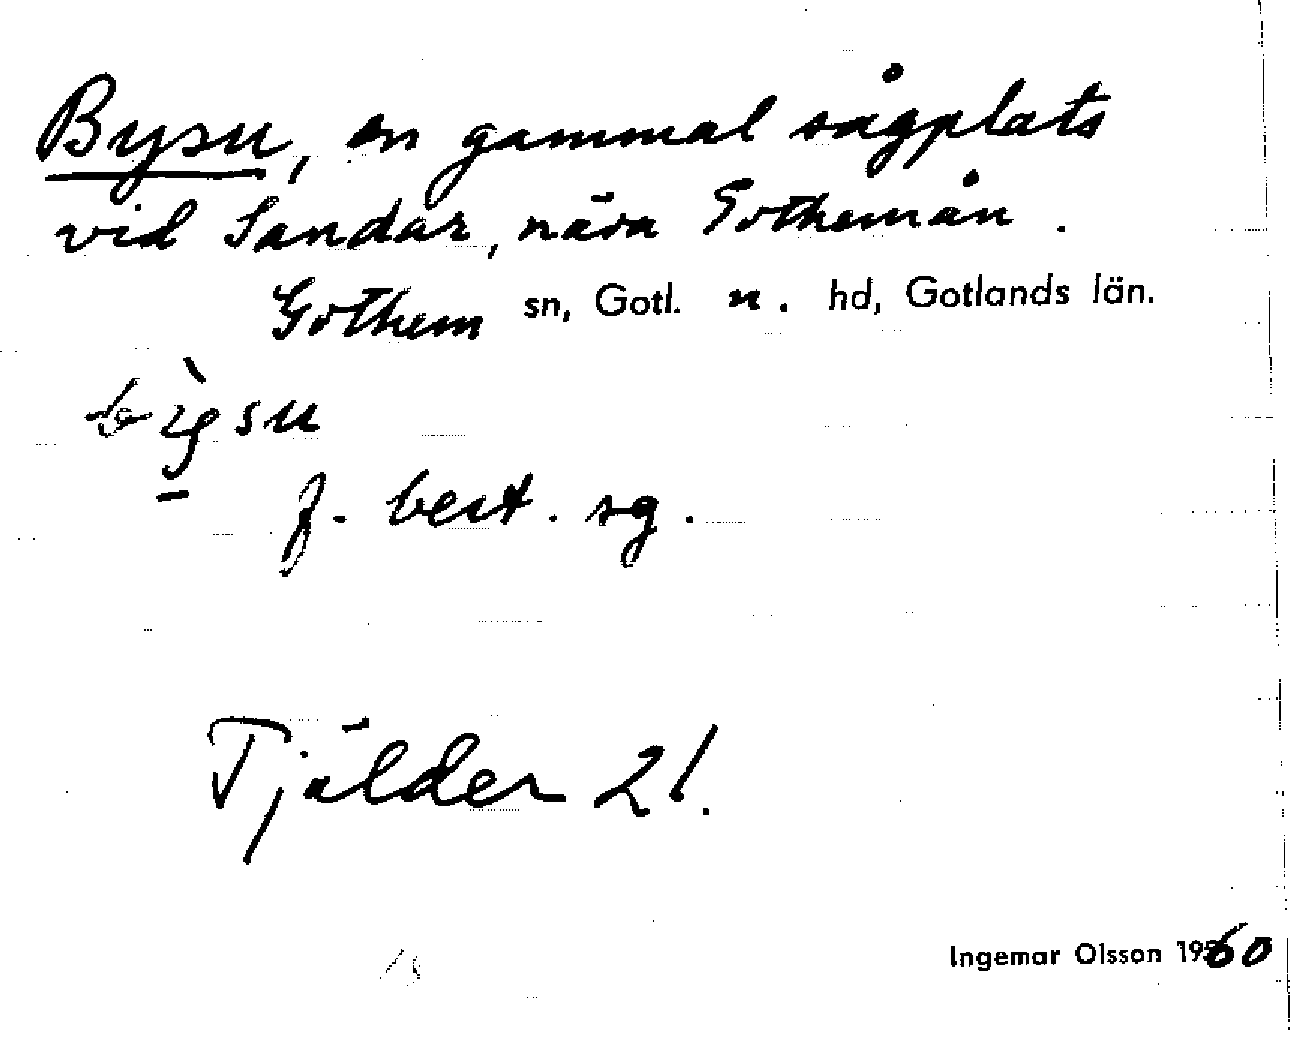 Bysu, en gammal sågplats
vid Sandar, nära Gothemån.
Gothem sn, Gotl. n. hd, Gotlands län.
f. best. sg.
Tjälder 21.
Ingemar Olsson 1960